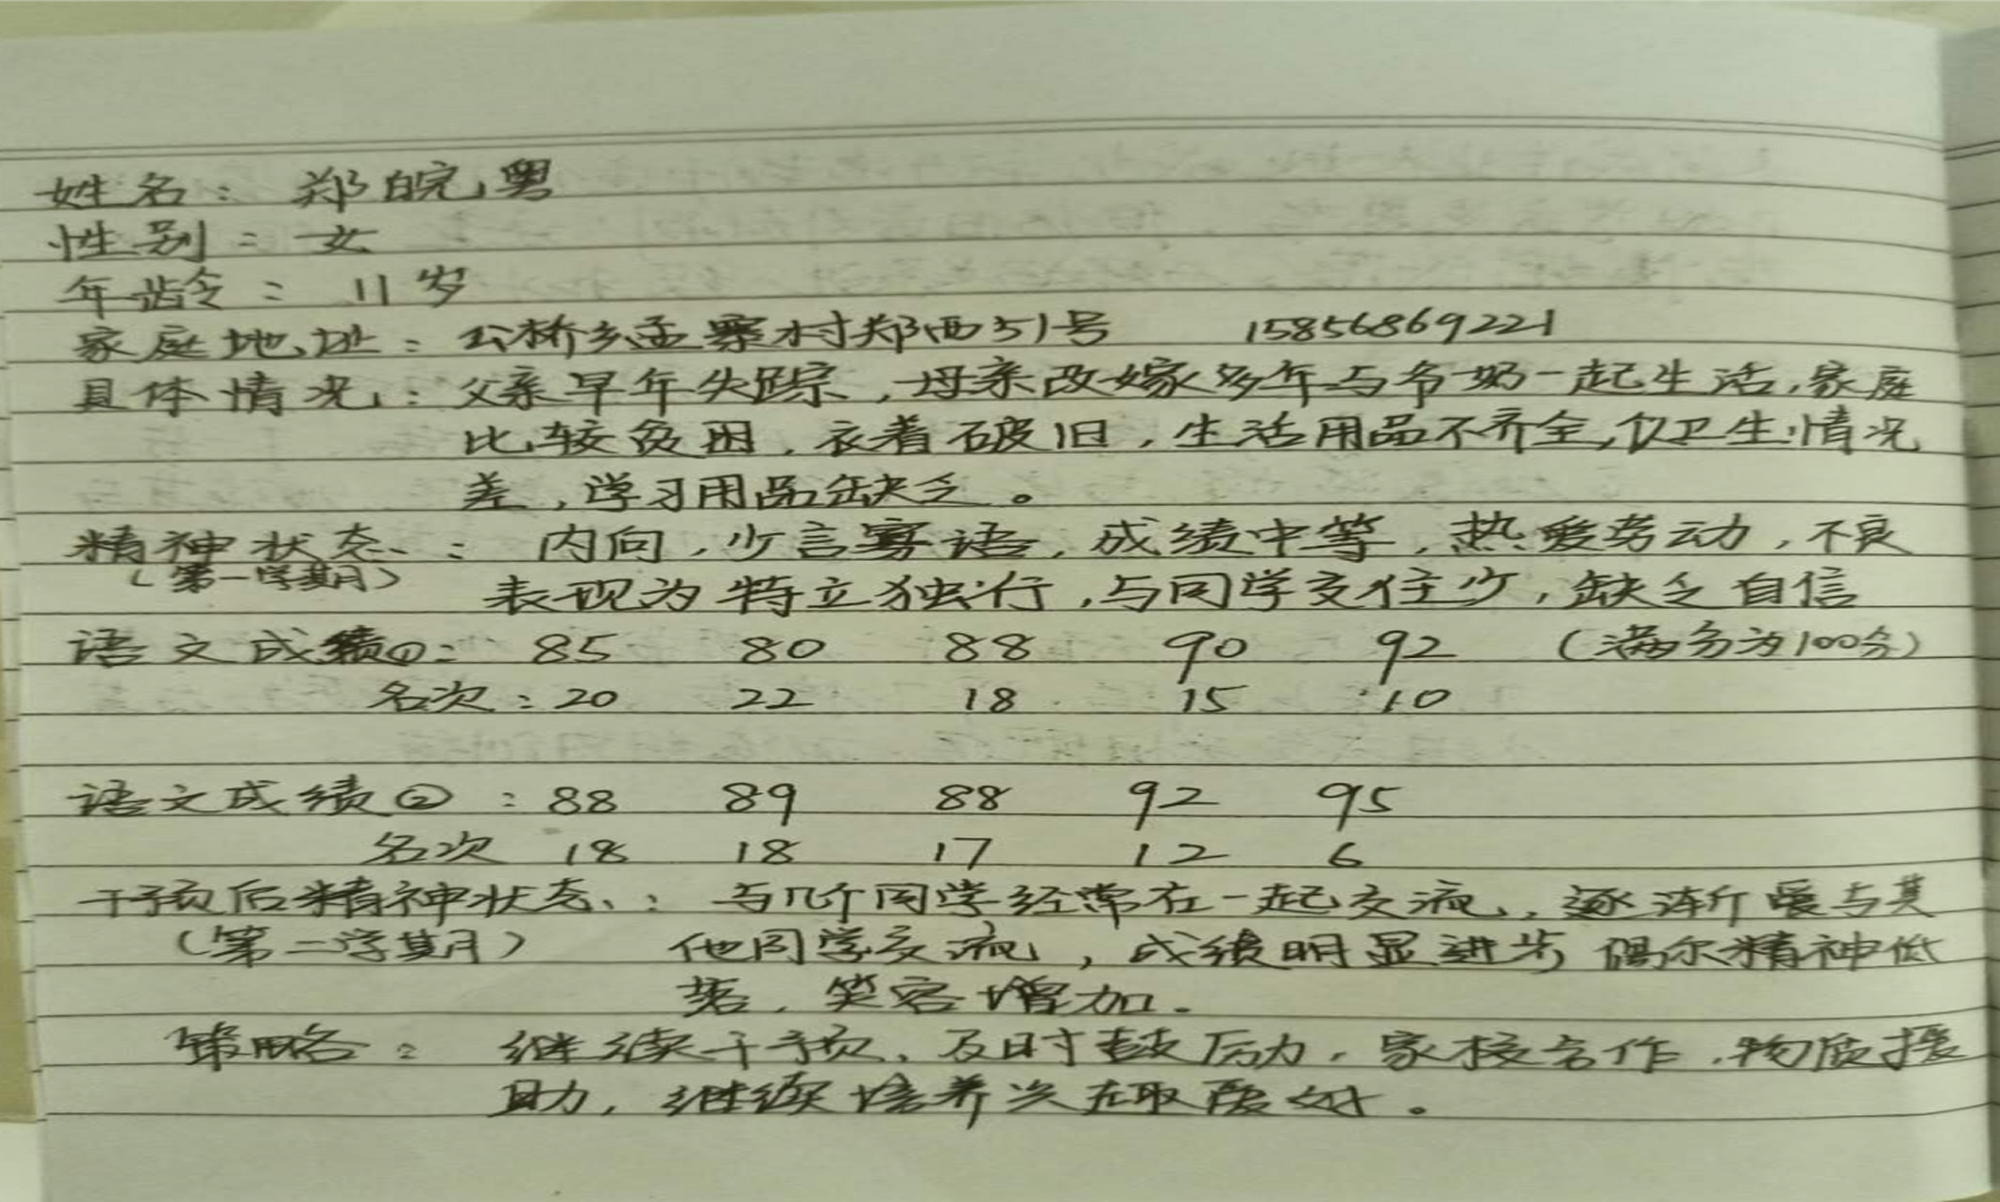 姓名：郑皖粤
性别：女
年龄：11岁
家庭地址：公桥乡孟寨村郑西51号 15856869221
具体情况：父亲早年失踪，母亲改嫁多年与爷奶一起生活，家庭
比较贫困，衣着破旧，生活用品不齐全，仪卫生情况
差，学习用品缺乏。
精神状态：内向，少言寡语，成绩中等，热爱劳动，不良
（第一学期） 表现为特立独行，与同学交往少，缺乏自信
语文成绩①：85 80 88 90 92 （满分为100分）
名次：20 22 18 15 10
语文成绩②：88 89 88 92 95
名次 18 18 17 12 6
干预后精神状态：与几个同学经常在一起交流，逐渐愿与其
（第二学期） 他同学交流，成绩明显进步 偶尔精神低
落，笑容增加。
策略：继续干预，及时鼓励，家校合作，物质援
助，继续培养兴趣爱好。